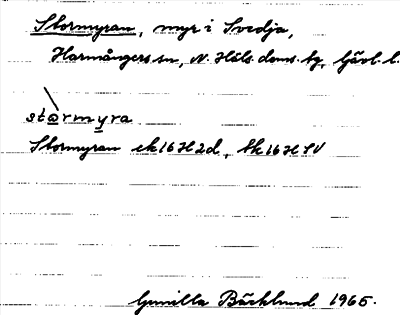 Stormyran, myr i Svedja,
Harmångers sn, N. Häls. doms. hg, Gävl. l.
stormyra
Stormyran ek 16H2d, tk 16H SV
Gunilla Bäcklund 1965.